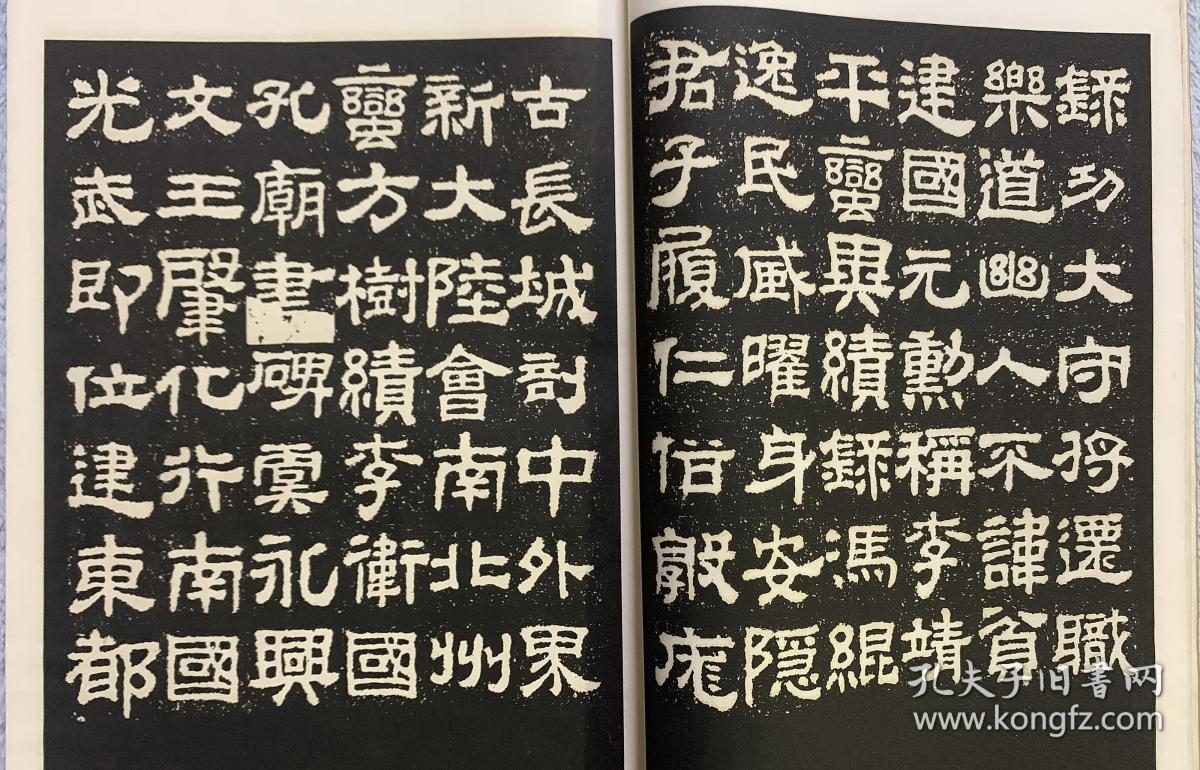 錄功大守将還職
樂道幽人不諱貧
建國元勳稱李靖
平蠻興績錄馮緄
逸民臧曜身安隱
君子履仁俗敦庬
古長城剖中外界
新大陸會南北州
蠻方樹績李衛國
孔廟書碑虞永興
文王肇化行南國
光武即位建東都
孔夫子旧書网
www.kongfz.com